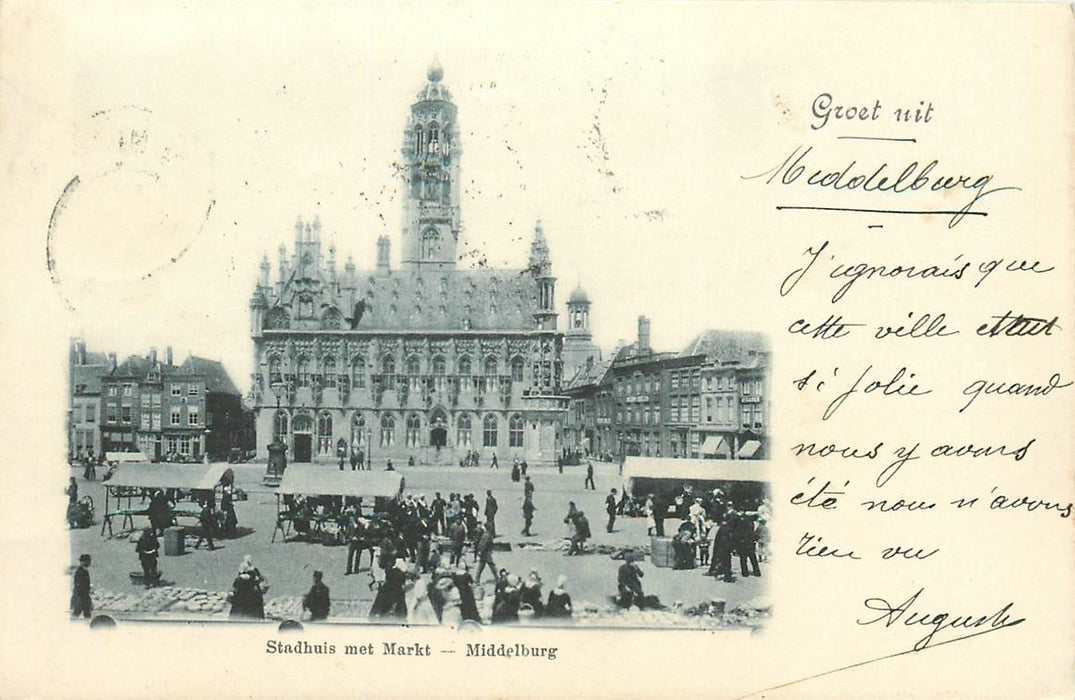 Groet uit
Middelburg
J'ignorais que
cette ville était
si jolie quand
nous y avons
été nous n'avons
rien vu
Auguste
Stadhuis met Markt — Middelburg